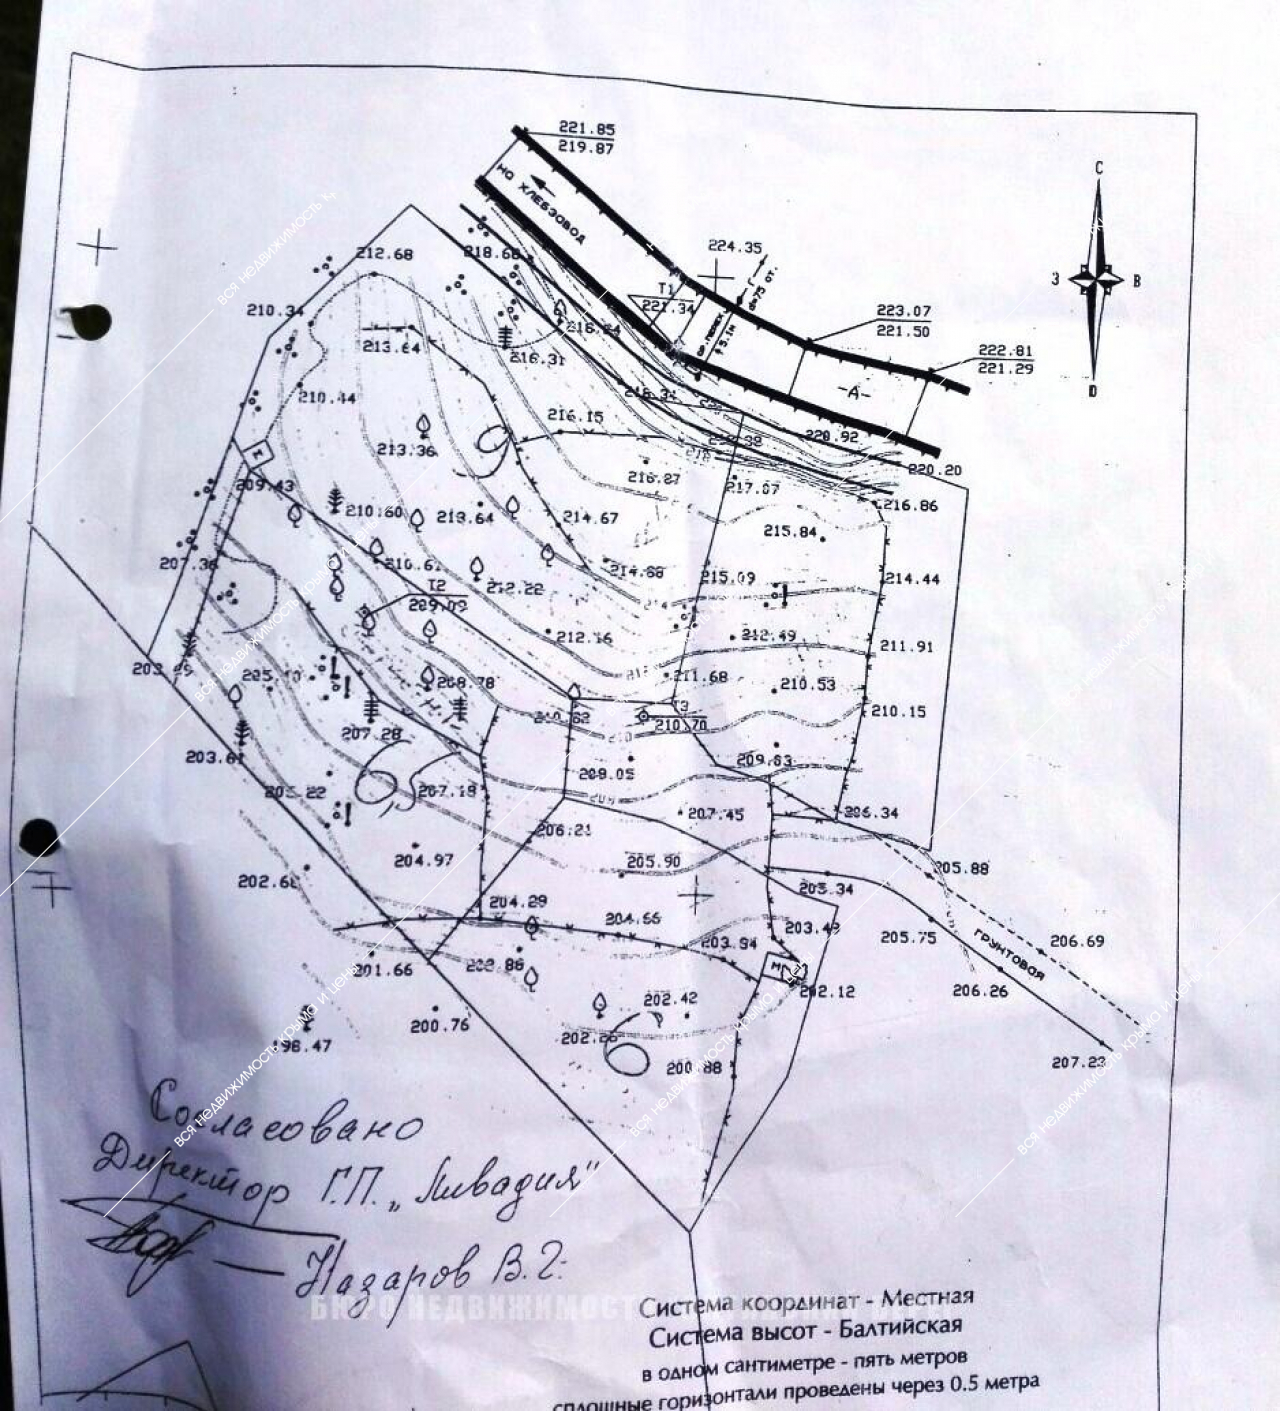 221.85
219.87
на хлебзовод
С
З
В
D
224.35
T1
221.34
d=75 ст.
212.68
218.68
210.34
223.07
221.50
213.64
216.31
222.81
221.29
-А-
210.44
216.15
213.36
9
220.92
220.20
209.43
216.27
217.07
216.86
210.60
213.64
214.67
215.84
207.36
214.68
215.09
214.44
T2
209.09
212.22
212.16
212.49
211.91
208.78
211.68
210.53
T3
210.70
210.15
207.28
203.61
209.63
208.05
207.18
207.45
206.34
206.21
204.97
205.90
202.68
205.88
204.29
205.34
204.66
203.94
203.48
205.75
ГРУНТОВАЯ
206.69
201.66
202.86
202.12
206.26
200.76
202.42
202.26
198.47
200.88
207.23
Согласовано
Директор Г.П. „Ливадия"
Назаров В.Г.
Система координат - Местная
Система высот - Балтийская
в одном сантиметре - пять метров
сплошные горизонтали проведены через 0.5 метра
БЮРО НЕДВИЖИМОСТ
ВСЯ НЕДВИЖИМОСТЬ КРЫМО И ЦЕНЫ